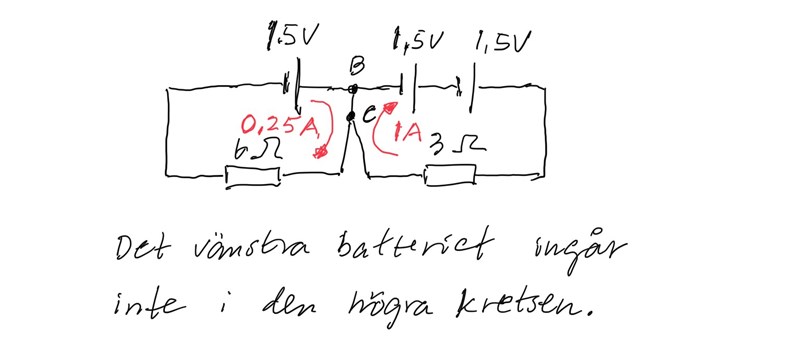 1.5V 1,5V 1,5V
B
C
0,25A 1A
6Ω 3Ω
Det vänstra batteriet ingår
inte i den högra kretsen.